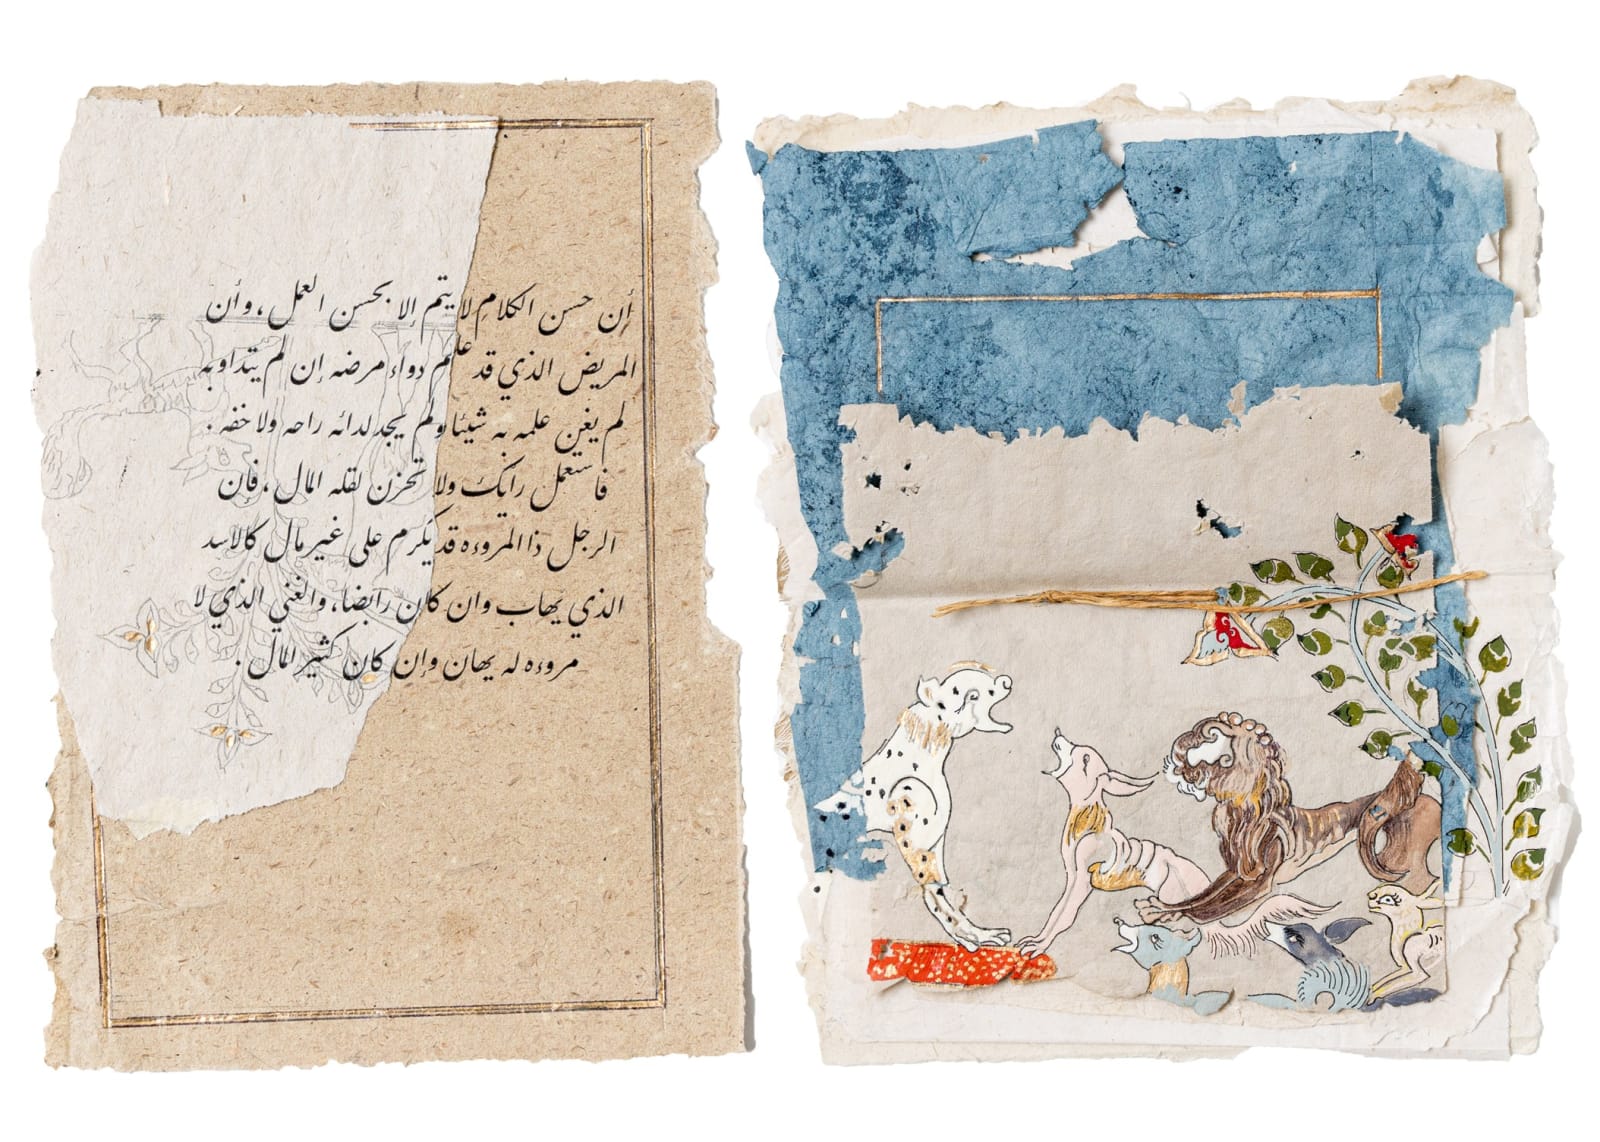 أن حسن الكلام لا يتم إلا بحسن العمل، وأن
المريض الذي قد علم دواء مرضه إن لم يتداو به
لم يغن علمه به شيئا ولم يجد لدائه راحه ولا خفه.
فاستعمل رايك ولا تحزن لقله المال، فإن
الرجل ذا المروءه قد يكرم على غير مال كالأسد
الذي يهاب وان كان رابضا، والغني الذي لا
مروءه له يهان وإن كان كثير المال.